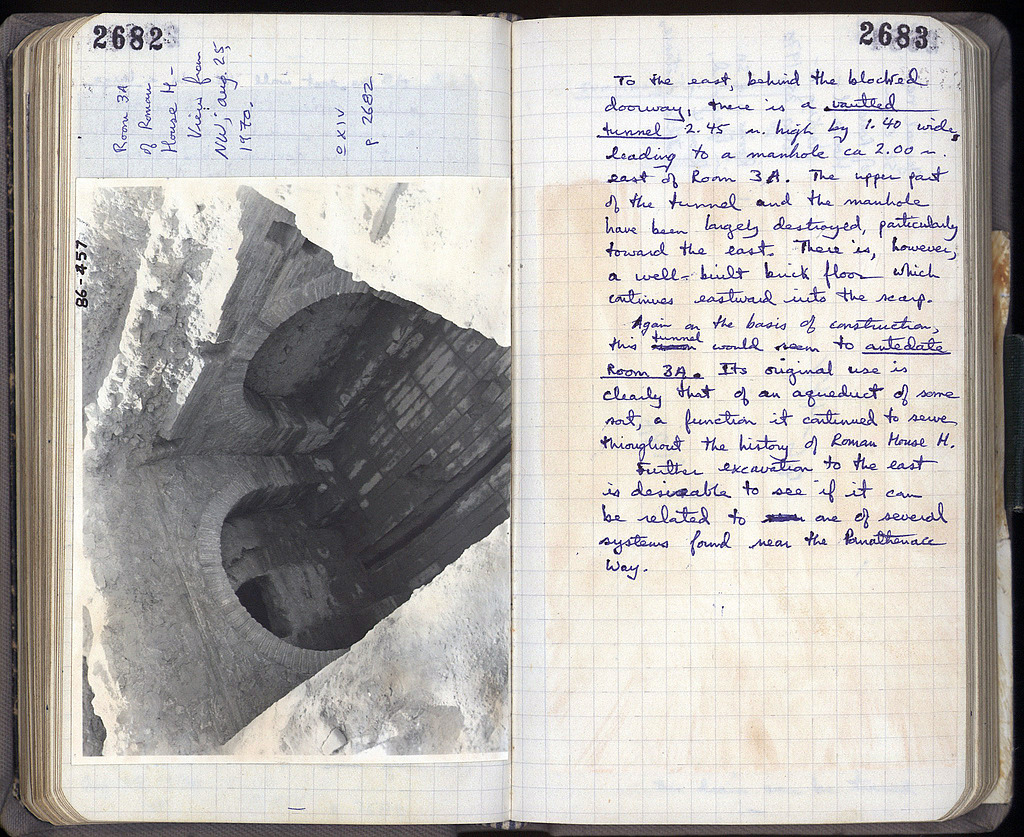 2682
Room 3A
of Roman
House H –
View from
NW, Aug. 25,
1970.
O XIV
p 2682
86-457
2683
To the east, behind the blocked
doorway, there is a vaulted
tunnel 2.45 m. high by 1.40 wide,
leading to a manhole ca 2.00 m.
east of Room 3A. The upper part
of the tunnel and the manhole
have been largely destroyed, particularly
toward the east. There is, however,
a well-built brick floor which
continues eastward into the scarp.
Again on the basis of construction,
this tunnel would seem to antedate
Room 3A. Its original use is
clearly that of an aqueduct of some
sort, a function it continued to serve
throughout the history of Roman House H.
Further excavation to the east
is desireable to see if it can
be related to one of several
systems found near the Panathenaic
Way.